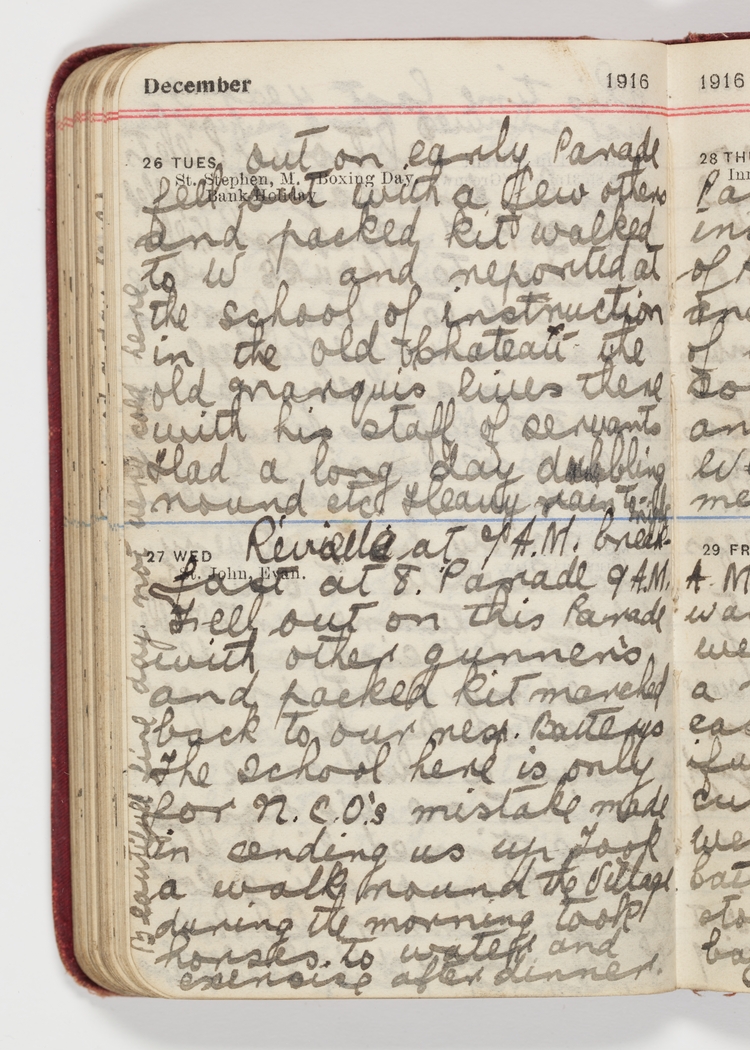 December 1916
26 TUES out on early Parade
St. Stephen, M. Boxing Day
Bank Holiday
fell out with a few others
and packed kit walked
to W and reported at
the school of instruction
in the old Chateau the
old marquis lives there
with his staff of servants
Had a long day
round etc. Heavy rain
27 WED Reviellé at 7 A.M. break-
St. John, Evan.
fast at 8. Parade 9 A.M.
Fell out on this Parade
with other gunners
and packed kit marched
back to our resp. Batterys
The school here is only
for N.C.O's mistake made
in cending us up Took
a walk round the Village
during the morning took
horses to water and
exercise after dinner.
Beautifull fine day. not very cold here
1916
28 THU
Inn
of
of
29 FR
A. M
we
a
we